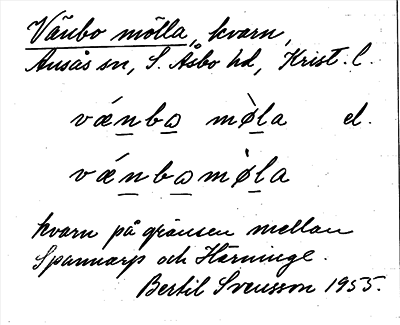 Vänbo mölla, kvarn,
Ausås sn, S. Åsbo hd, Krist. l.
vǽnbo mø̀la el.
vǽnbomø̀la
kvarn på gränsen mellan
Spannarp och Härninge.
Bertil Svensson 1955.